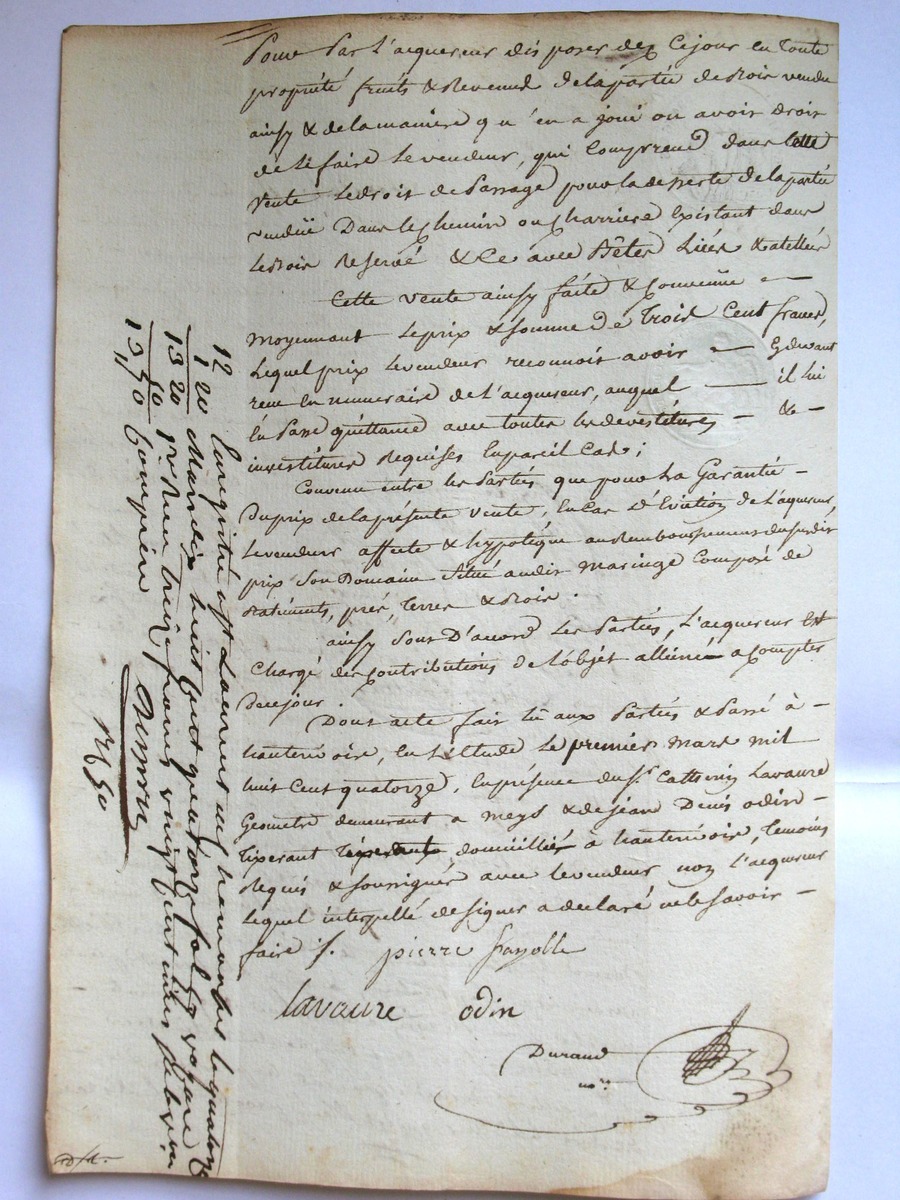 Pour Par L'acquereur disposer dez Cejour en Toute
propriété fruits & Revenus delapartie deBois vendu
ainsy & delamaniere qu'en a joui ou avoir droit
de Le faire Levendeur, qui Comprend dans Cette
vente Ledroit dePassage pour ladesserte delapartie
vendüe Dans leChemin ou Charriere Existant dans
LeBois Reservé & Ce avec Bêtes Liées & attellés
Cette vente ainsy faite & Convenüe —
moyennant Leprix & somme de Trois Cent francs,
Lequel prix Levendeur reconnoit avoir — Cydevant
reçu En numeraire de L'acquereur, auquel — il lui
En Passe quittance avec toutes les devestitures — & —
investitures Requises Enpareil Cas ;
Convenu entre les Parties que pour La Garantie —
Duprix delapresente vente, En Cas D'Eviction de L'acquereur
Levendeur affecte & hypotéque auRemboursement dususdit
prix Son Domaine Situé audit Maringe Composé de
Batiments, prés, Terres & Bois .
ainsy Sont D'accord Les Parties, L'acquereur Est
Chargé des Contributions de L'objet alliené a Compter
decejour .
Dont acte fait lû aux Parties & Passé à —
hauterivoire, En L'Etude Le premier mars mil
huit Cent quatorze, Enprésence du Sr. Catherin Lavaure
Geometre demeurant a meys & de jean Denis odin —
Tixerant domiciliés à hauterivoire, Temoins
Requis & soussignés avec Levendeur non L'acquereur
Lequel interpellé designer a déclaré nele savoir —
faire /.
pierre fayolle
lavaure odin
Durand
nore
12
1 20
13 20
Enregistré a St Laurent de Chamousset le quatorze
Mars dix huit cent quatorze fol
reçu treize francs vingt centimes
13,,50 Compris